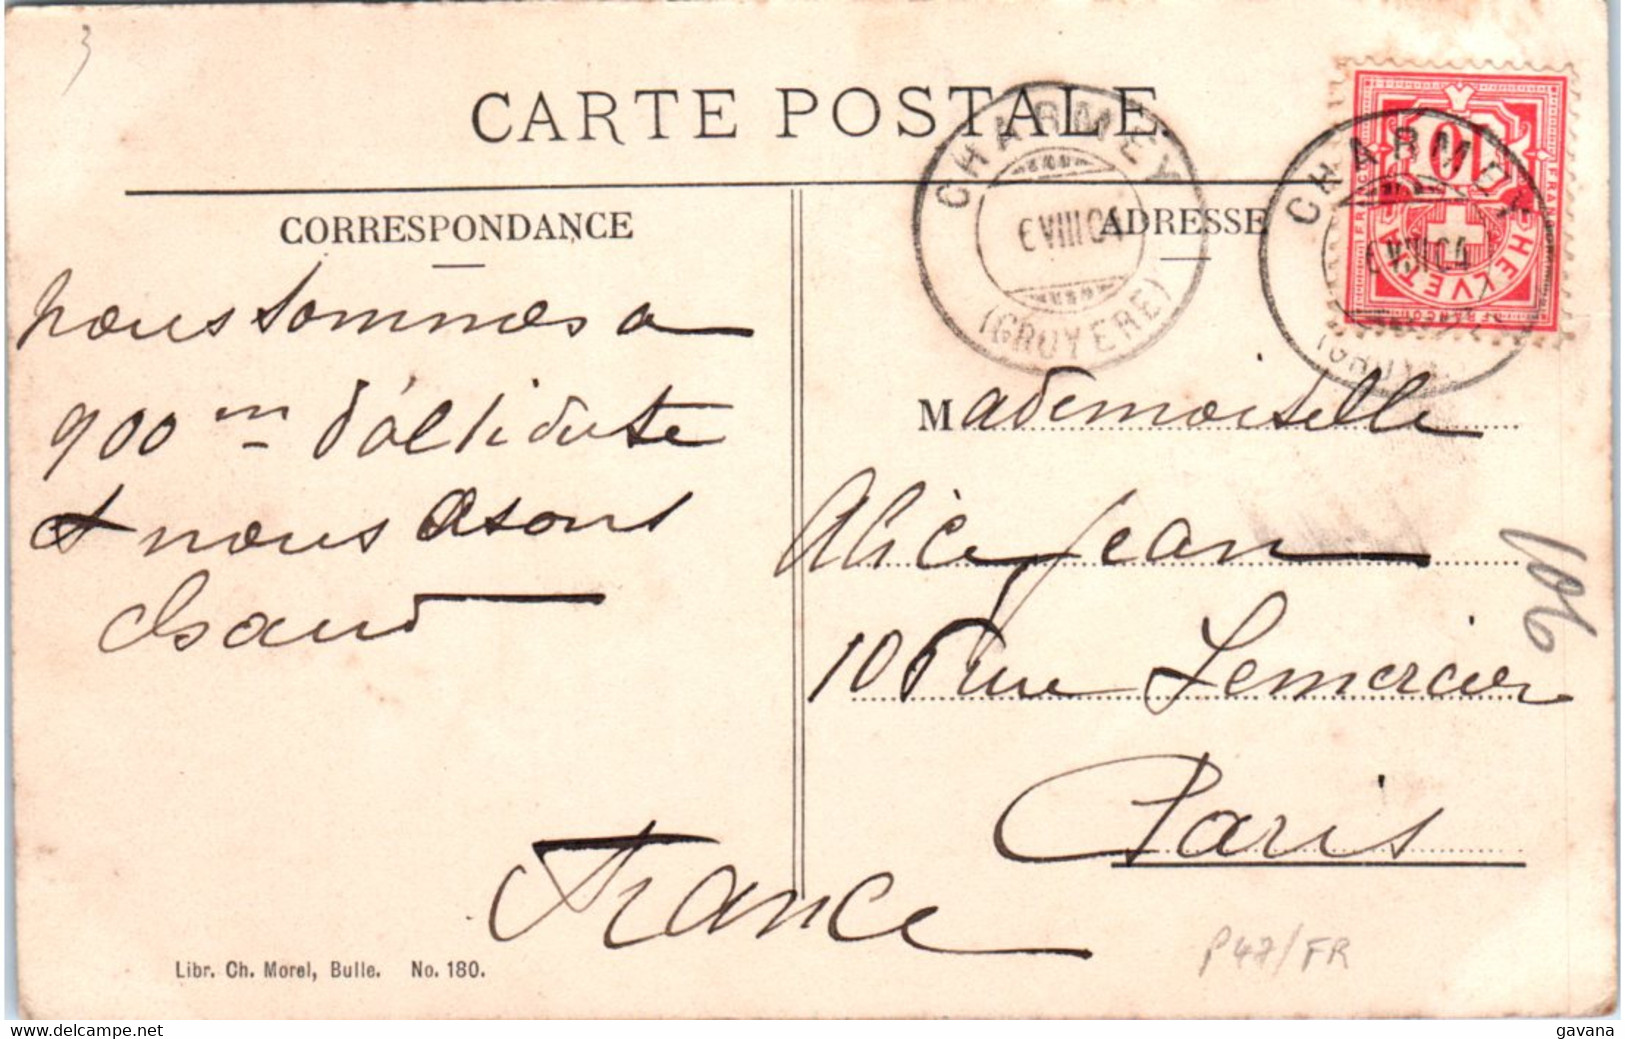 3
CARTE POSTALE.
CHARMEY
6 VIII 04
(GRUYERE)
CHARMEY
6 VIII 04
(GRUY
10
HELVETIA
FRANCO
CORRESPONDANCE
ADRESSE
nous sommes a
900 m d'altidute
et nous avons
chaud
Mademoiselle
Alice Jean
106 rue Lemercier
Paris
France
106
P47/FR
Libr. Ch. Morel, Bulle. No. 180.
www.delcampe.net
gavana